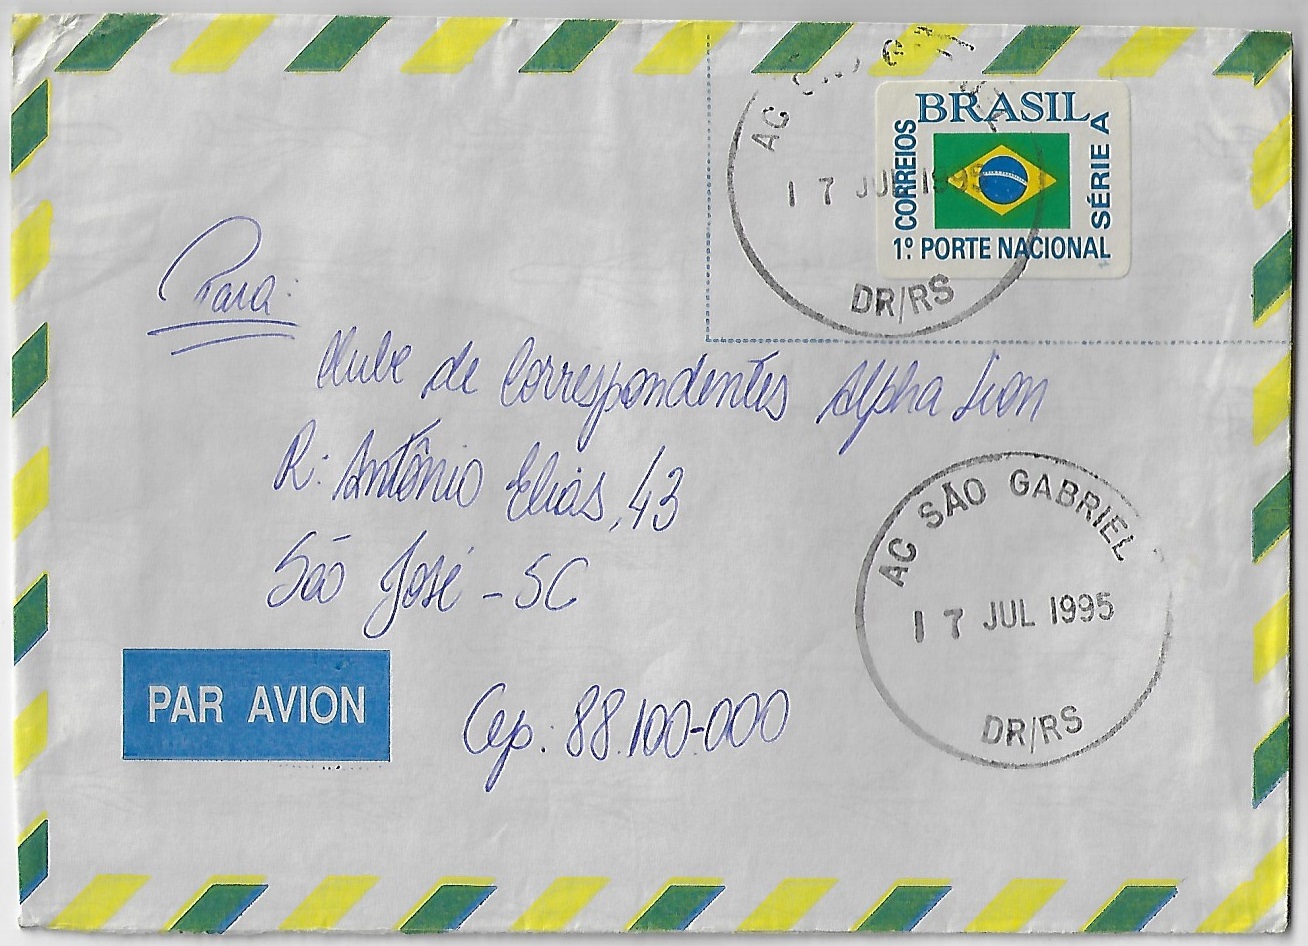 BRASIL
CORREIOS
SÉRIE A
1º PORTE NACIONAL
AC
17 JUL 1995
DR/RS
Para:
Clube de Correspondentes Alpha Lion
R: Antônio Elias, 43
São José - SC
Cep: 88.100-000
PAR AVION
AC SÃO GABRIEL
17 JUL 1995
DR/RS